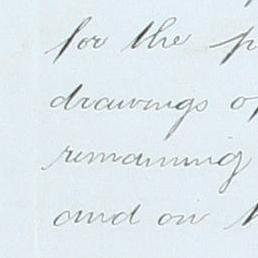 for the
drawings
remaining
and on